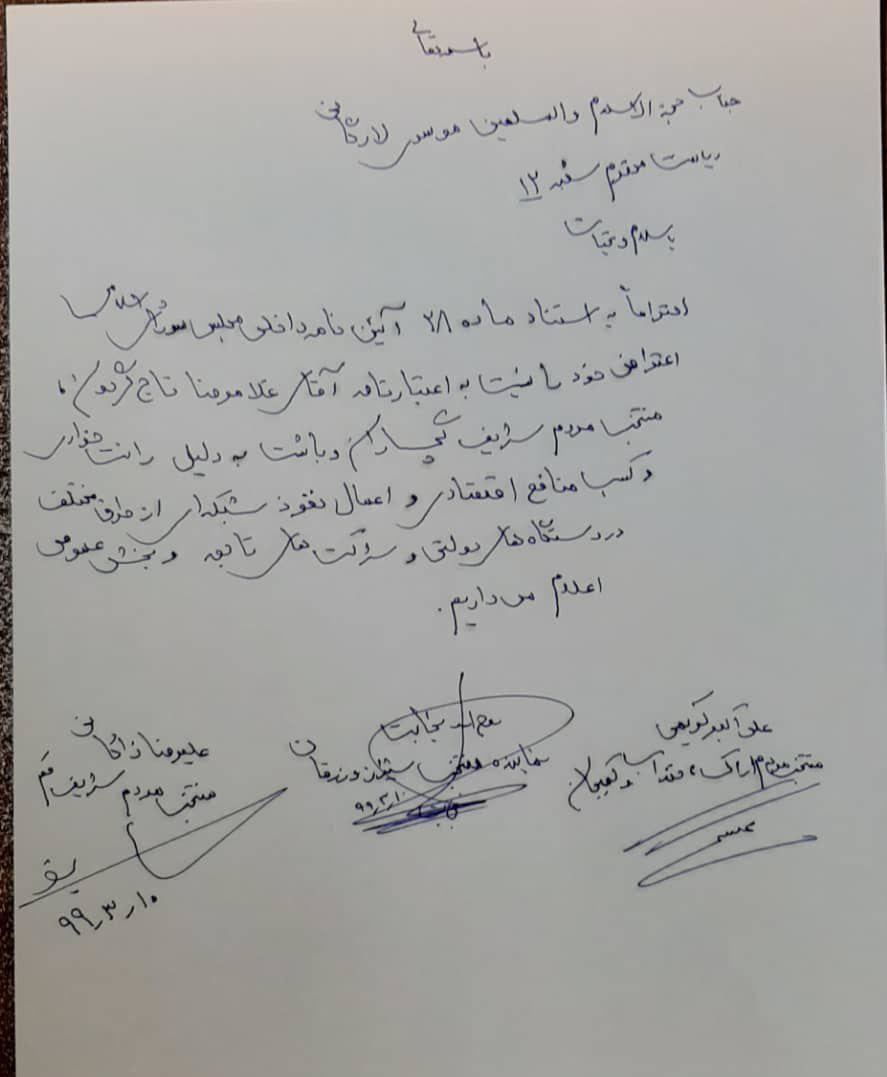 باسمه تعالی
جناب حجة الاسلام والمسلمین موسوی لارگانی
ریاست محترم شعبه ۱۲
با سلام و تحیات
احتراماً به استناد ماده ۲۸ آئین نامه داخلی مجلس شورای اسلامی
اعتراض خود را نسبت به اعتبارنامه آقای غلامرضا تاجگردون،
منتخب مردم شریف گچساران و باشت به دلیل رانت خواری
و کسب منافع اقتصادی و اعمال نفوذ شبکه‌ای از طرق مختلف
در دستگاه های دولتی و شرکت های تابعه و بخش عمومی
اعلام می داریم.
علی اکبر کریمی
منتخب مردم اراک، خنداب و کمیجان
روح اله نجابت
نماینده منتخب شیراز و زرقان
۹۹٫۳٫۱۰
علیرضا زاکانی
منتخب مردم شریف قم
۹۹٫۳٫۱۰